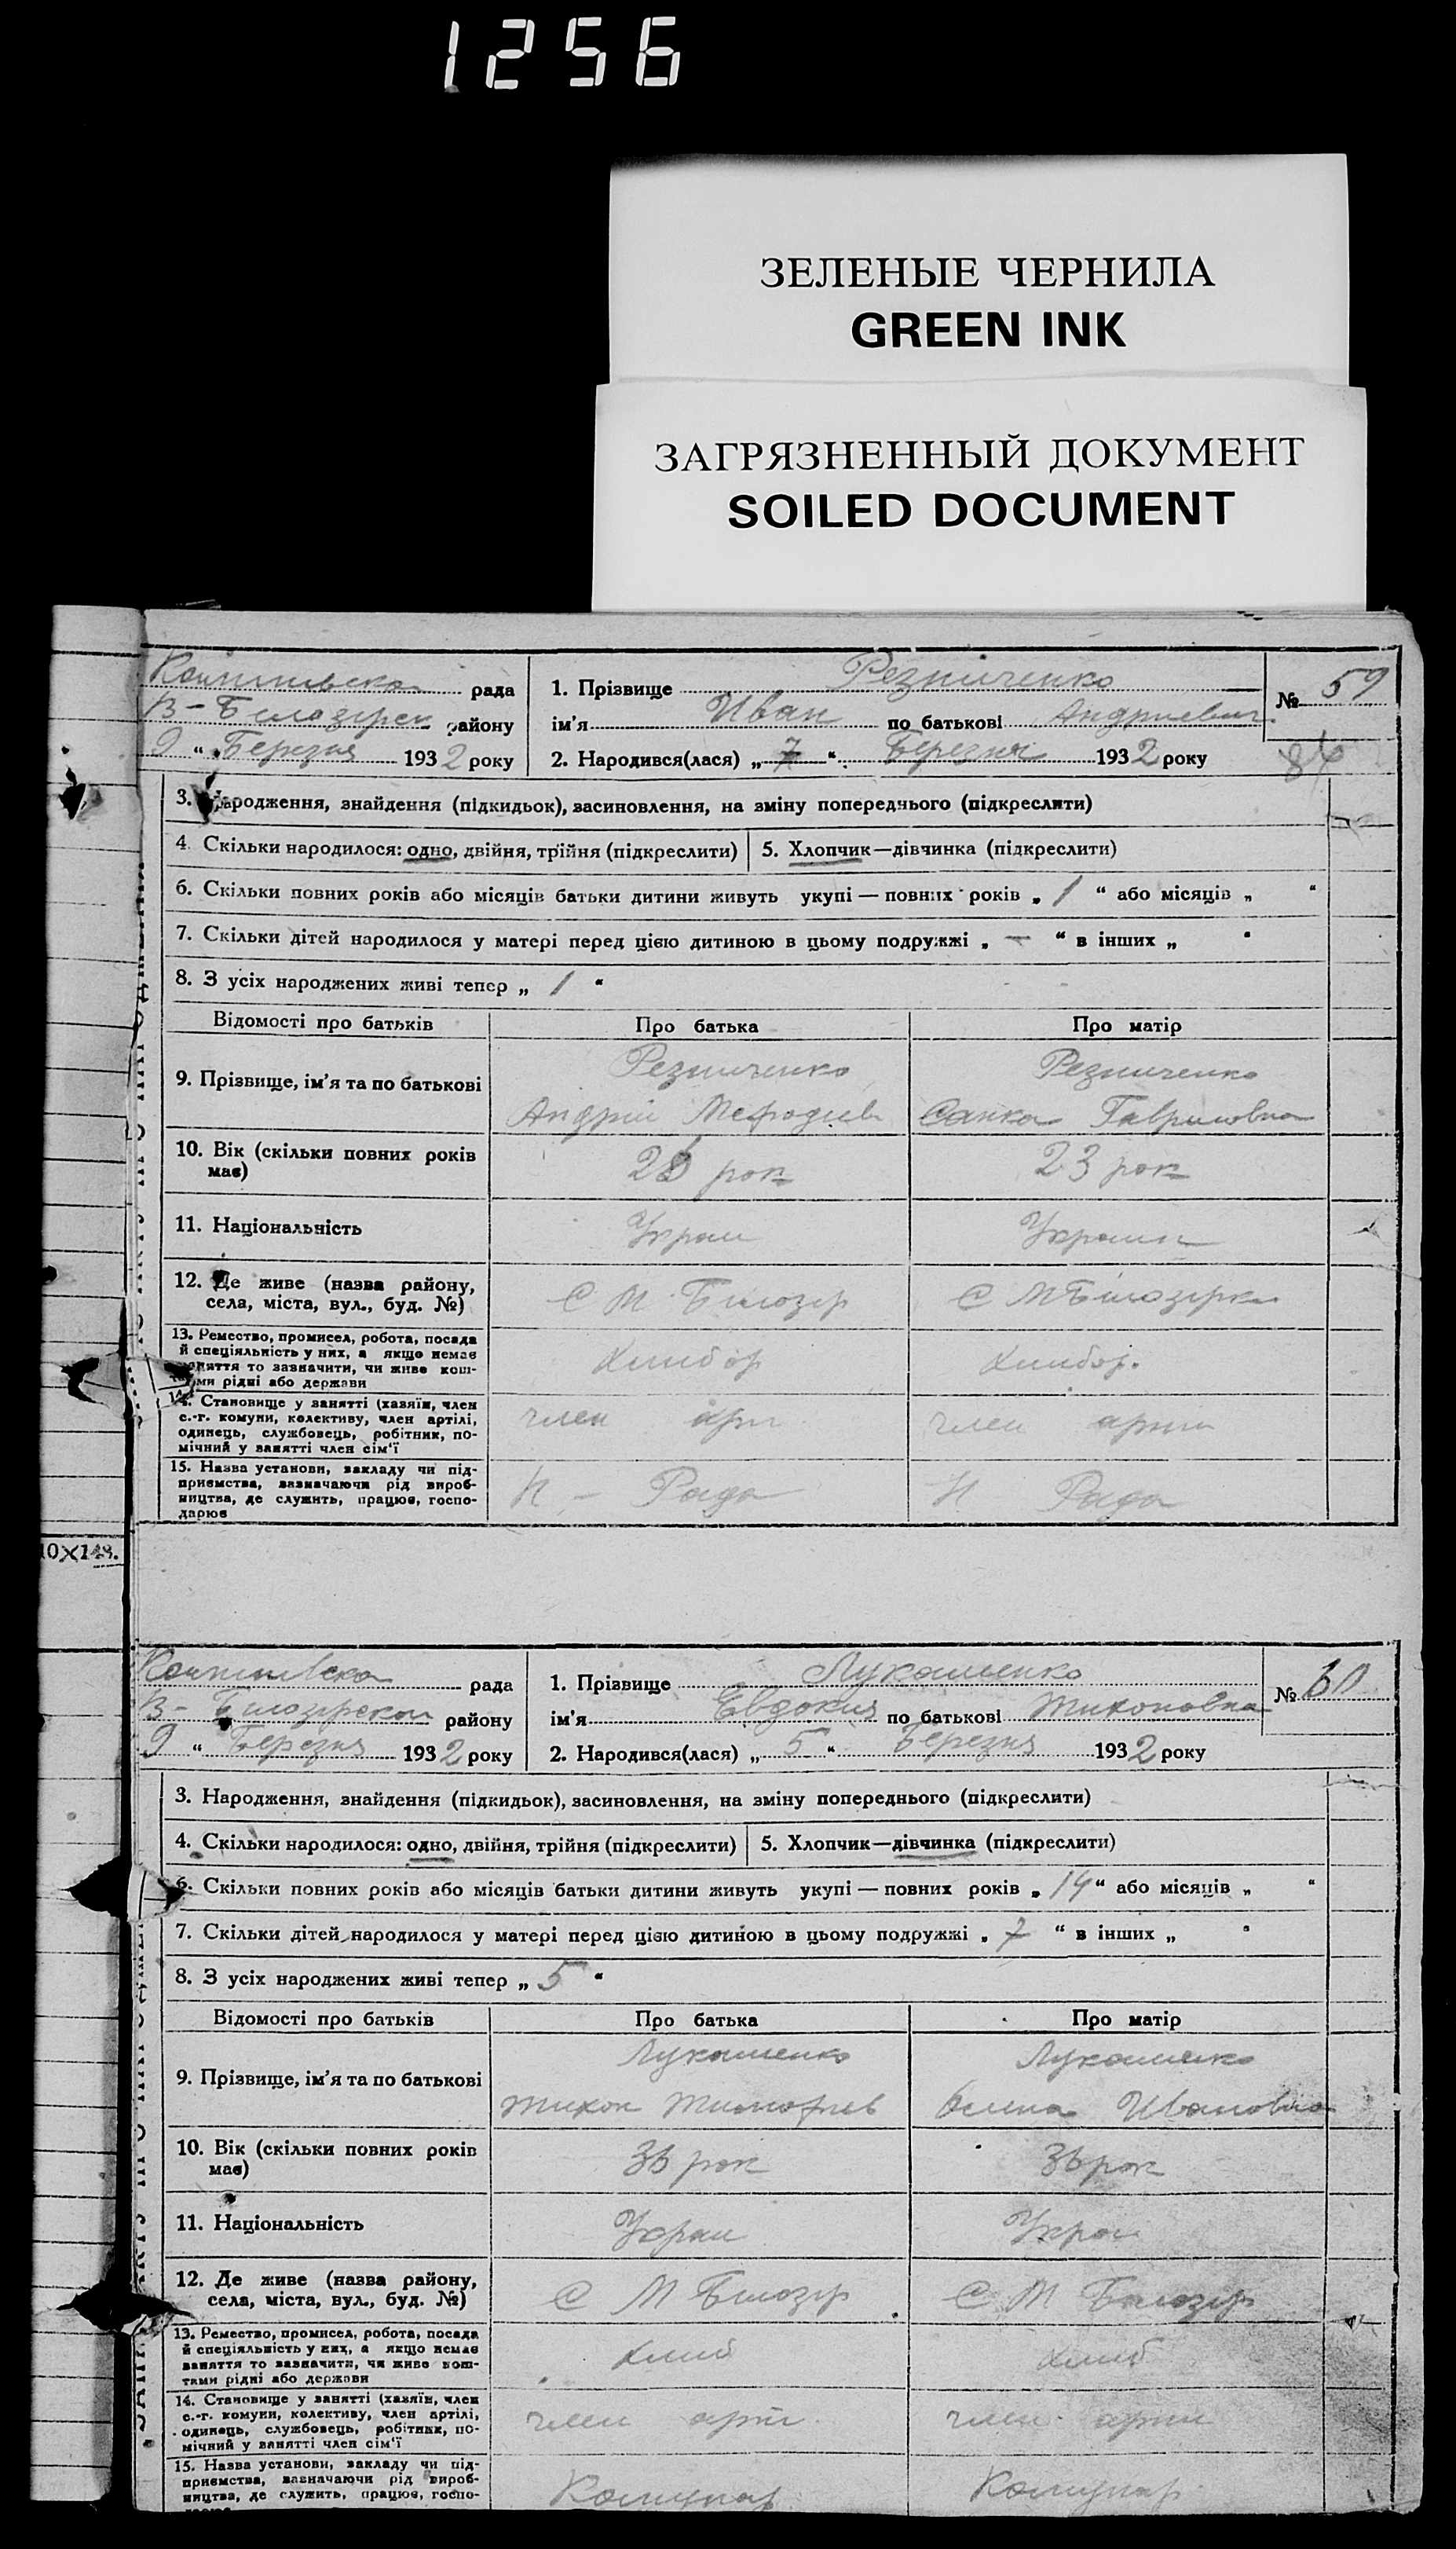 1256
ЗЕЛЕНЫЕ ЧЕРНИЛА
GREEN INK
ЗАГРЯЗНЕННЫЙ ДОКУМЕНТ
SOILED DOCUMENT
рада
В-Білозірск району
9 " Березня 1932 року
1. Прізвище Резниченко
ім'я Иван по батькові Андриевич
2. Народився(лася) „ 7 " Березня 1932 року
№ 59
84
3. Народження, знайдення (підкидьок), засиновлення, на зміну попереднього (підкреслити)
4. Скільки народилося: одно, двійня, трійня (підкреслити)
5. Хлопчик—дівчинка (підкреслити)
6. Скільки повних років або місяців батьки дитини живуть укупі — повних років „ 1 " або місяців „ "
7. Скільки дітей народилося у матері перед цією дитиною в цьому подружжі „ — " в інших „ "
8. З усіх народжених живі тепер „ 1 "
Відомості про батьків Про батька Про матір
9. Прізвище, ім'я та по батькові
Резниченко Резниченко
Андрій Мефодиев Санка Гавриловна
10. Вік (скільки повних років
має)
рок 23 рок
11. Національність
Украи Украин
12. Де живе (назва району,
села, міста, вул., буд. №)
С М Білозір С М Білозірка
13. Ремество, промисел, робота, посада
й спеціяльність у них, а якщо немає
заняття то зазначити, чи живе кош-
тами рідні або держави
Хлибор Хлибор.
14. Становище у занятті (хазяїн, член
с.-г. комуни, колективу, член артілі,
одинець, службовець, робітник, по-
мічний у занятті член сім'ї
член арт член арти
15. Назва установи, закладу чи під-
приємства, зазначаючи рід вироб-
ництва, де служить, працює, госпо-
дарює
Н - Рада Н Рада
10×148.
рада
В-Білозірскои району
9 " Березня 1932 року
1. Прізвище Лукашенко
ім'я Евдокия по батькові Тихоновна
2. Народився(лася) „ 5 " Березня 1932 року
№ 60
3. Народження, знайдення (підкидьок), засиновлення, на зміну попереднього (підкреслити)
4. Скільки народилося: одно, двійня, трійня (підкреслити)
5. Хлопчик—дівчинка (підкреслити)
6. Скільки повних років або місяців батьки дитини живуть укупі — повних років „ 14 " або місяців „ "
7. Скільки дітей народилося у матері перед цією дитиною в цьому подружжі „ 7 " в інших „ "
8. З усіх народжених живі тепер „ 5 "
Відомості про батьків Про батька Про матір
9. Прізвище, ім'я та по батькові
Лукашенко Лукашенко
Тихон Тимофиев Олена Ивановна
10. Вік (скільки повних років
має)
36 рок 36 рок
11. Національність
Украи Украи
12. Де живе (назва району,
села, міста, вул., буд. №)
С М Білозір С М Білозір
13. Ремество, промисел, робота, посада
й спеціяльність у них, а якщо немає
заняття то зазначити, чи живе кош-
тами рідні або держави
Хлиб Хлиб
14. Становище у занятті (хазяїн, член
с.-г. комуни, колективу, член артілі,
одинець, службовець, робітник, по-
мічний у занятті член сім'ї
член арти член арти
15. Назва установи, закладу чи під-
приємства, зазначаючи рід вироб-
ництва, де служить, працює, госпо-
Комунар Комунар